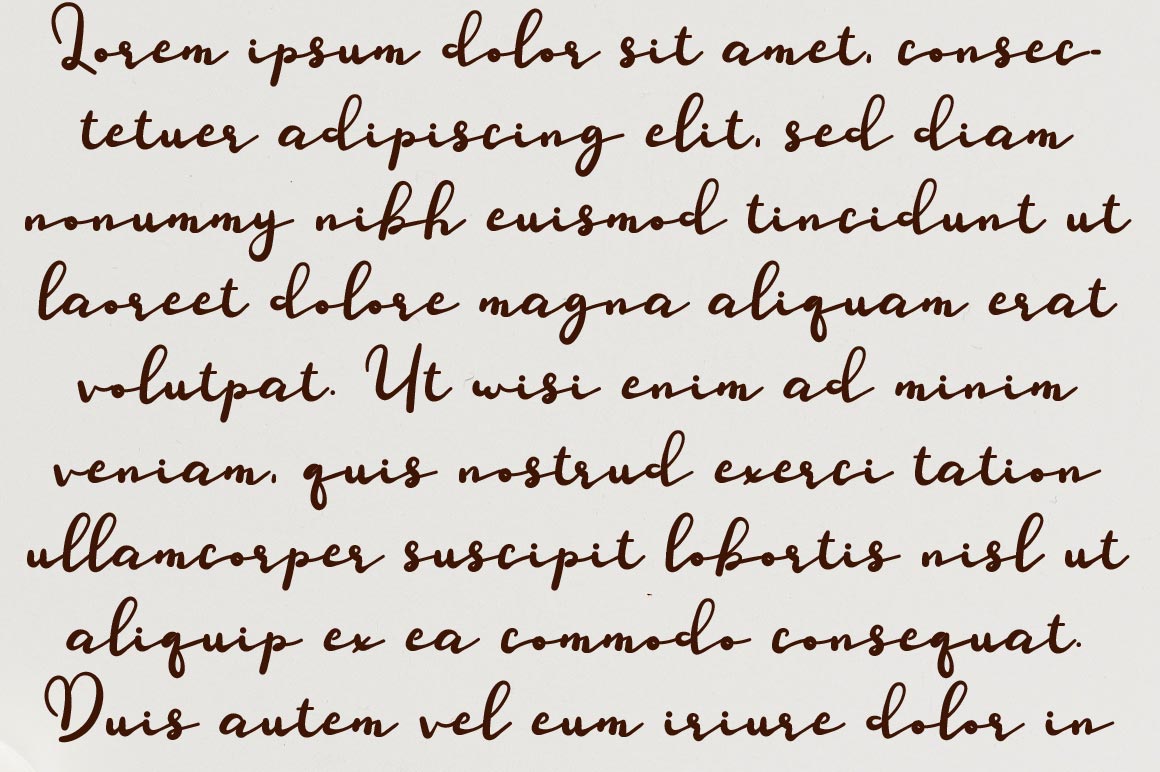 Lorem ipsum dolor sit amet, consec-
tetuer adipiscing elit, sed diam
nonummy nibh euismod tincidunt ut
laoreet dolore magna aliquam erat
volutpat. Ut wisi enim ad minim
veniam, quis nostrud exerci tation
ullamcorper suscipit lobortis nisl ut
aliquip ex ea commodo consequat.
Duis autem vel eum iriure dolor in